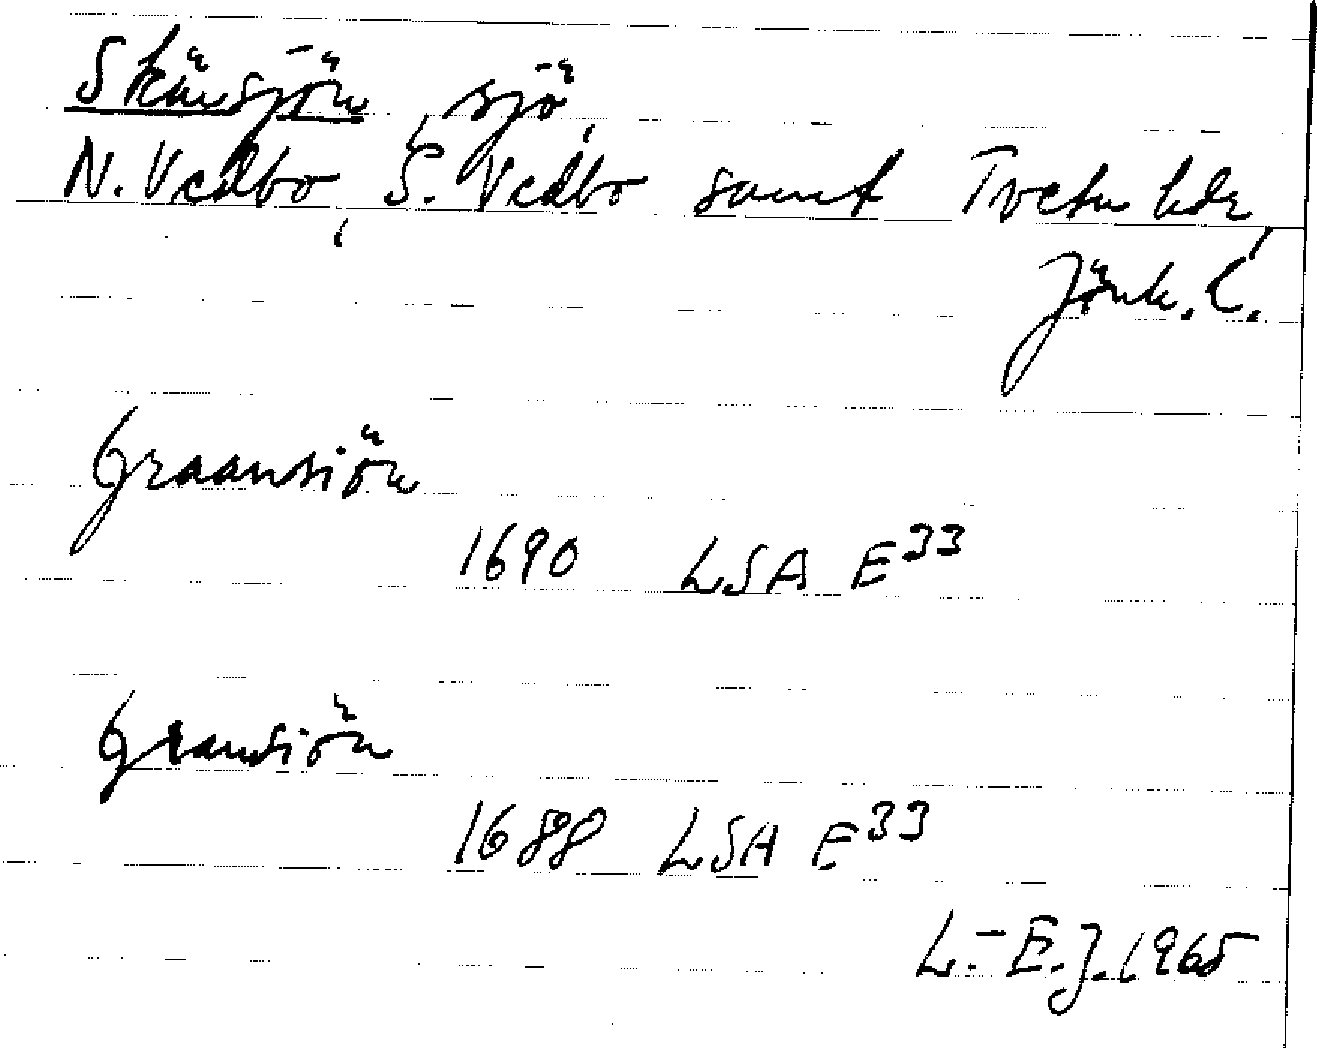 Skänsjön, sjö,
N. Vedbo, S. Vedbo samt Tveta hdr,
Jönk. L.
Graansiön
1690 LSA E33
Gransiön
1688 LSA E33
L.-E.J. 1965